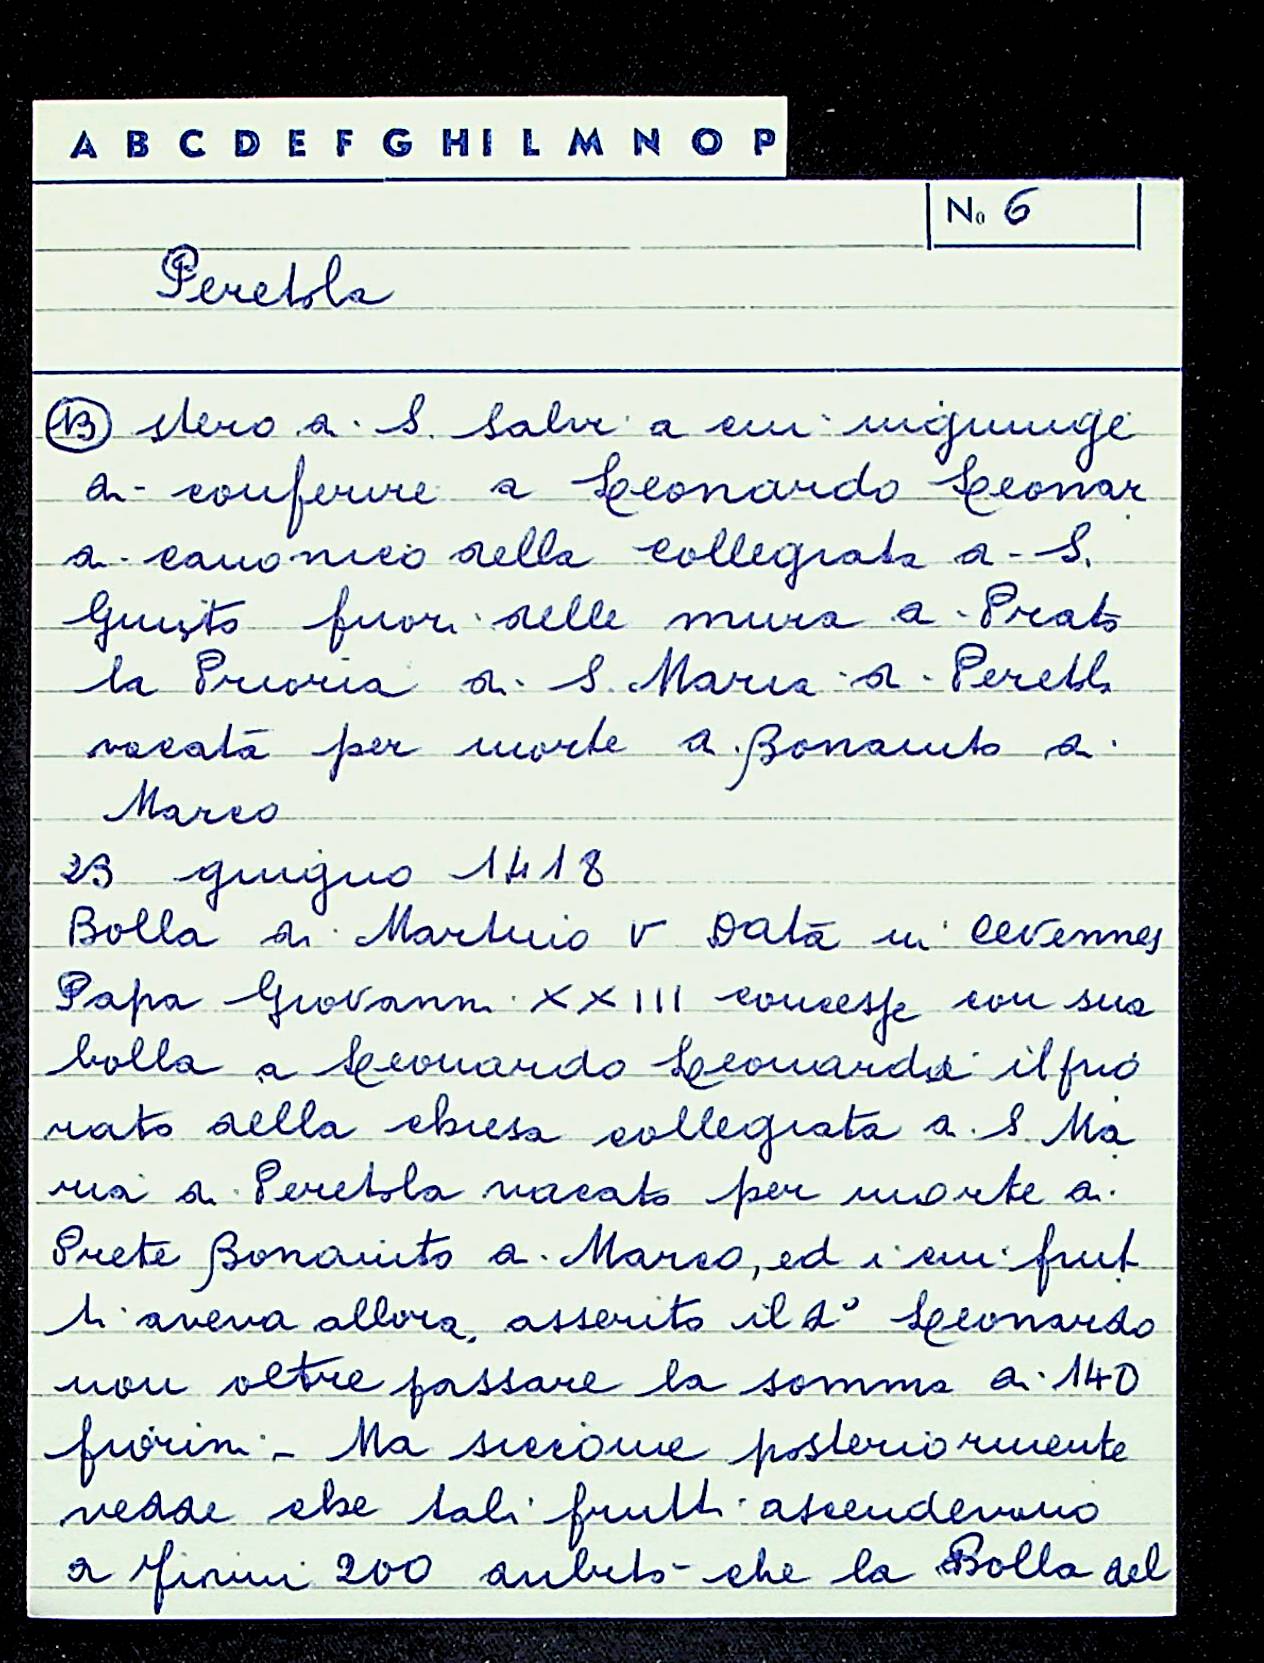 A B C D E F G H I L M N O P
No 6
Peretola
13 stero di S. Salvi a cui ingiunge
di conferire a Leonardo Leonar
di canonico della collegiata di S.
Giusto fuori delle mura di Prato
la Prioria di S. Maria di Peretola
vacata per morte di Bonaiuto di
Marco
23 giugno 1418
Bolla di Martino V Data in
Papa Giovanni XXIII concesse con sua
bolla a Leonardo Leonardi il prio
rato della chiesa collegiata di S. Ma
ria di Peretola vacato per morte di
Prete Bonaiuto di Marco, ed i cui frut
ti aveva allora asserito il do Leonardo
non oltre passare la somma di 140
fiorini - Ma siccome posteriormente
vedde che tali frutti ascendevano
a fiorini 200 dubitò che la Bolla del